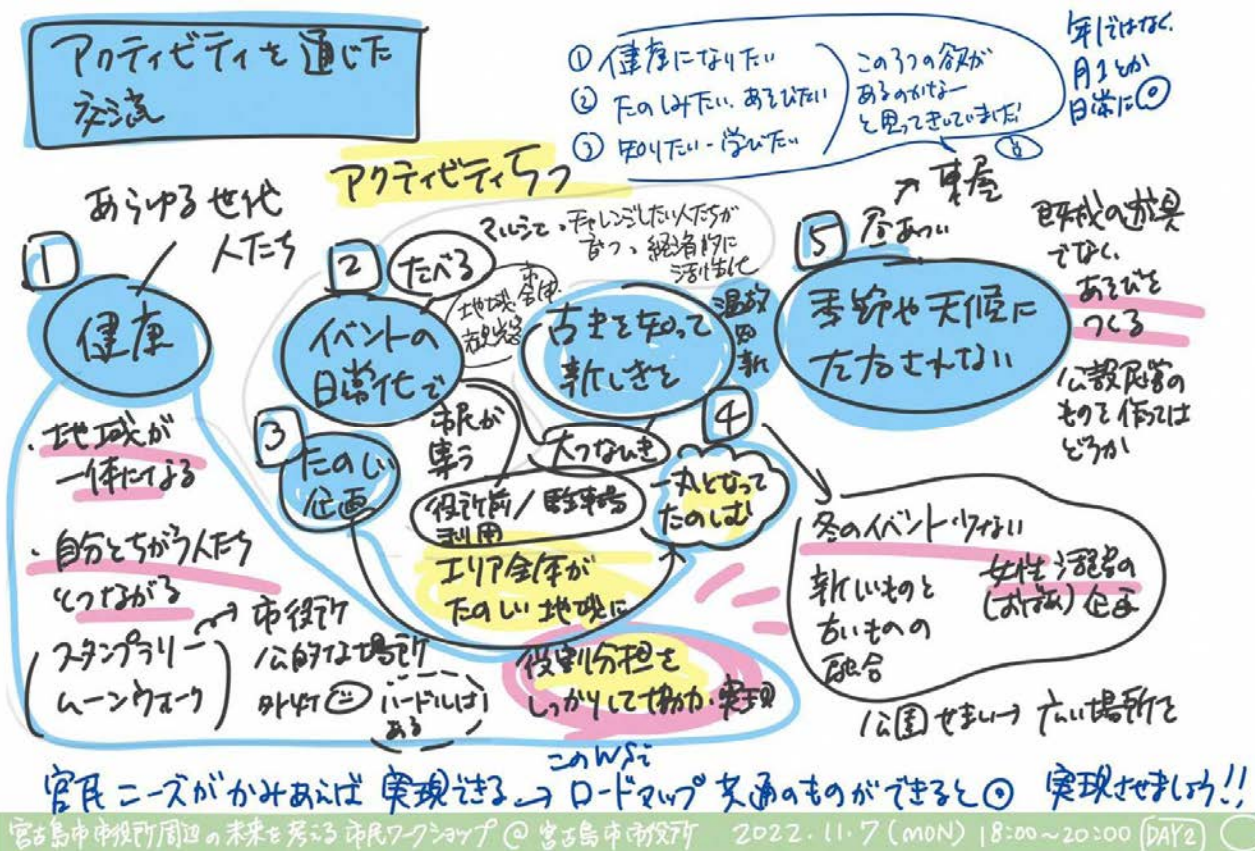 アクティビティを通じた
交流
① 健康になりたい
② たのしみたい、あそびたい
③ 知りたい-学びたい
この3つの欲が
あるのかなー
と思ってきいていました!
年1ではなく、
月1とか
日常に◎
アクティビティ5つ
あらゆる世代
人たち
1
健康
・地域が
一体になる
・自分とちがう人たち
とつながる
スタンプラリー
ムーンウォーク
→市役所
公的な場所
ハードルは
ある
2
たべる
マルシェ→チャレンジしたい人たちが
育つ、経済的に
活性化
イベントの
日常化で
3
たのしい
企画
市民が
集う
役所前/駐車場
利用
エリア全体が
たのしい地域に
古きを知って
新しきを
温故
知新
大つなひき
4
一丸となって
たのしむ
役割分担を
しっかりして協力・実現
5
昼あつい
↗東屋
季節や天候に
左右されない
既成の道具
でなく、
あそびを
つくる
公設民営の
ものを作っては
どうか
冬のイベント少ない
新しいものと
古いものの
融合
女性活躍の
(おばあ)企画
公園せまい→広い場所を
官民ニーズがかみあえば実現できる→
このWSで
ロードマップ共通のものができると◎ 実現させましょう!!
宮古島市市役所周辺の未来を考える市民ワークショップ@宮古島市市役所 2022.11.7(MON)18:00~20:00 DAY2